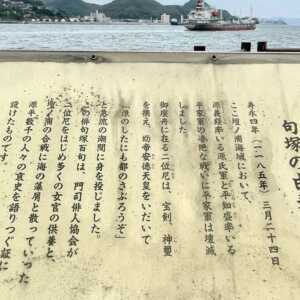 句塚の由
寿永四年(一一八五年)三月二十四
ここ壇ノ浦海域において、
源義経率いる源氏軍と平知盛率いる
平家軍の壮絶な戦いに平家軍は壊滅
しました。
御座舟に在る二位尼は、宝剣、神璽
を携え、幼帝安徳天皇をいだいて
「浪のしたにも都のさぶろうぞ」
と急流の潮間に身を投じました。
この俳句塚百句は、門司俳人協会が
二位尼をはじめ多くの女官の供養と、
壇ノ浦の合戦に海の藻屑と散っていった
源平数千の人々の哀史を語りつぐ証に
設けたものです。